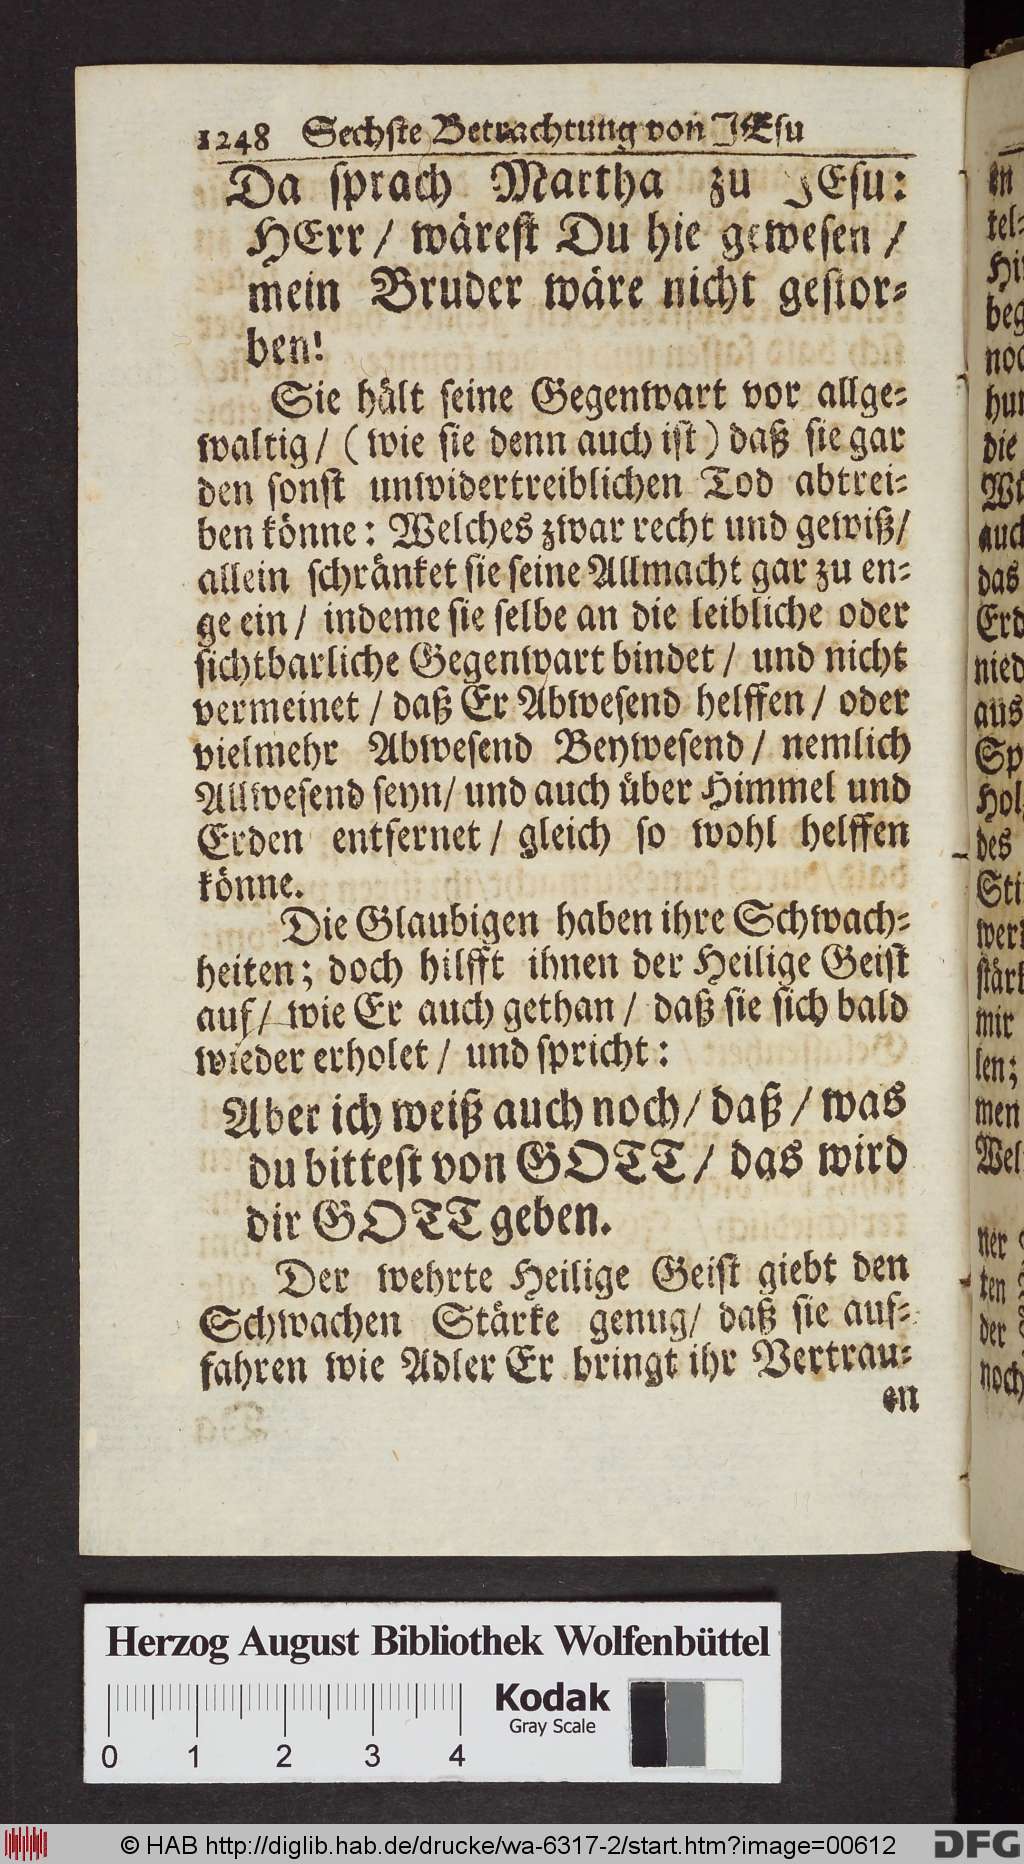 1248 Sechste Betrachtung von JEsu
Da sprach Martha zu JEsu:
HErr / wärest Du hie gewesen /
mein Bruder wäre nicht gestor-
ben!
Sie hält seine Gegenwart vor allge-
waltig / ( wie sie denn auch ist ) daß sie gar
den sonst unwidertreiblichen Tod abtrei-
ben könne: Welches zwar recht und gewiß /
allein schränket sie seine Allmacht gar zu en-
ge ein / indeme sie selbe an die leibliche oder
sichtbarliche Gegenwart bindet / und nicht
vermeinet / daß Er Abwesend helffen / oder
vielmehr Abwesend Beywesend / nemlich
Allwesend seyn / und auch über Himmel und
Erden entfernet / gleich so wohl helffen
könne.
Die Glaubigen haben ihre Schwach-
heiten; doch hilfft ihnen der Heilige Geist
auf / wie Er auch gethan / daß sie sich bald
wieder erholet / und spricht:
Aber ich weiß auch noch / daß / was
du bittest von GOTT / das wird
dir GOTT geben.
Der wehrte Heilige Geist giebt den
Schwachen Stärke genug / daß sie auf-
fahren wie Adler Er bringt ihr Vertrau-
en
en
tel-
beg
noc
hun
die
auch
das
Erd
nied
aus
Sp
Hol
des
Sti
werk
stärk
mir
len;
men
Wel
ner
ten
der
noch
Herzog August Bibliothek Wolfenbüttel
Kodak
Gray Scale
0 1 2 3 4
© HAB http://diglib.hab.de/drucke/wa-6317-2/start.htm?image=00612
DFG